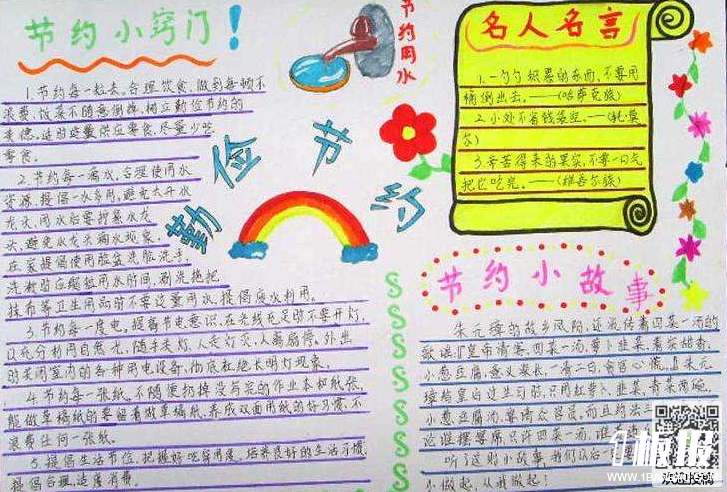 节约小窍门!
1.节约每一粒米。合理饮食,做到每顿不
浪费,饭菜不随意倒掉,树立勤俭节约的
美德。适时适量供应零食,尽量少吃
零食。
2.节约每一滴水,合理使用水
资源,提倡一水多用,避免大开水
龙头,用水后要拧紧水龙
头,避免水龙头滴水现象。
在家提倡使用脸盆洗脸洗手。
洗漱前后缩短用水时间,刷洗拖把、
抹布等卫生用品时不要过量用水,提倡废水利用。
3.节约每一度电。提高节电意识,在光线充足时不要开灯,
以充分利用自然光,随手关灯,人走灯灭,人离扇停。外出
时关闭室内的各种用电设备,彻底杜绝长明灯现象。
4.节约每一张纸。不随便扔掉没写完的作业本和纸张,
能做草稿纸的要留着做草稿纸,养成双面用纸的好习惯,不
浪费任何一张纸。
5.提倡生活节俭,把握好吃穿用度,培养良好的生活习惯,
提倡合理、适度消费。
节约用水
勤俭节约
名人名言
1.一勺勺积累的东西,不要用
桶倒出去。——(哈萨克族)
2.小处不省钱袋空。——(托·莫
尔)
3.辛苦得来的果实,不要一口气
把它吃完。——(维吾尔族)
节约小故事
朱元璋的故乡凤阳,还流传着四菜一汤的
歌谣:“皇帝请客,四菜一汤,萝卜韭菜,着实甜香;
小葱豆腐,意义深长,一清二白,贪官心慌。”朱元
璋给皇后过生日时,只用红萝卜、韭菜,青菜两碗,
小葱豆腐汤,宴请众官员。而且约法三
论谁摆宴席,只许四菜一汤,谁
听了这则小故事,我们以后
小做起,从我做起!
1板报
WWW.1BANBAO.COM